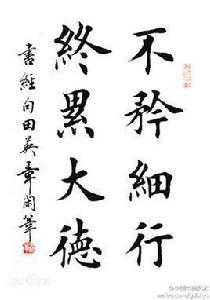 不矜細行
終累大德
書經句田英章開筆